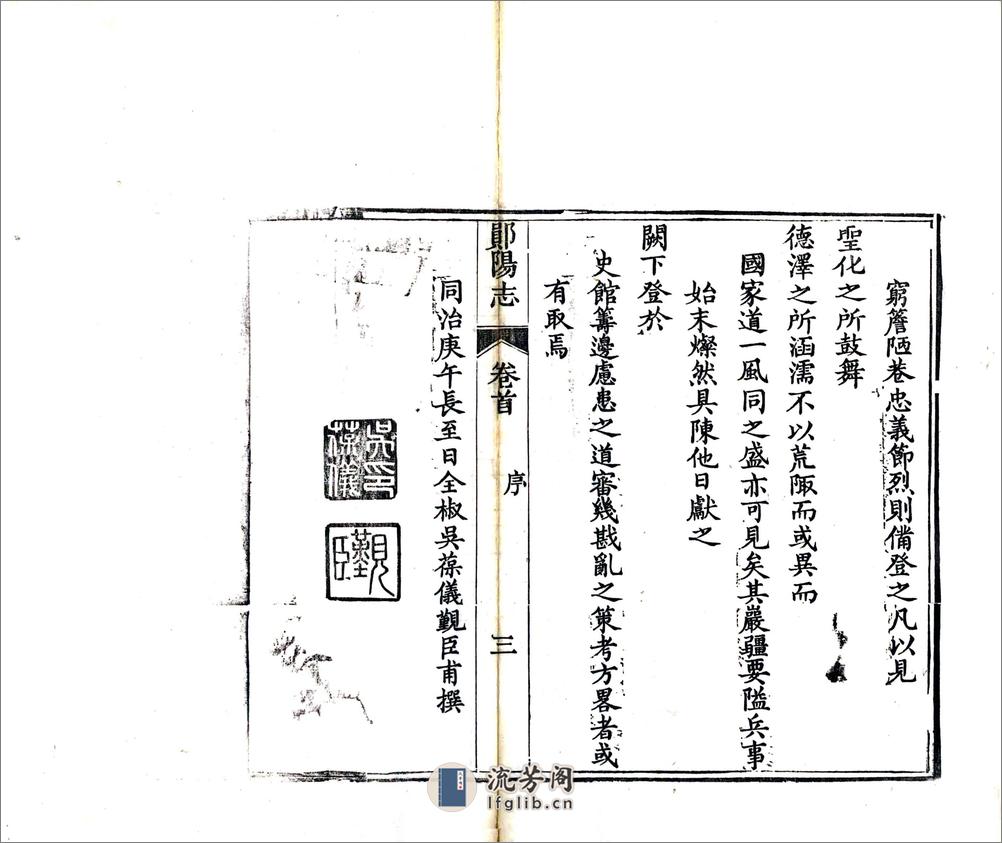 窮簷陋巷忠義節烈則備登之凡以見
聖化之所鼓舞
德澤之所涵濡不以荒陬而或異而
國家道一風同之盛亦可見矣其嚴疆要隘兵事
始末燦然具陳他日獻之
闕下登於
史館籌邊慮患之道審幾戡亂之策考方畧者或
有取焉
同治庚午長至日全椒吳葆儀覲臣甫撰
吳印葆儀
覲臣
鄖陽志
卷首
序
三
流芳阁
lfglib.cn